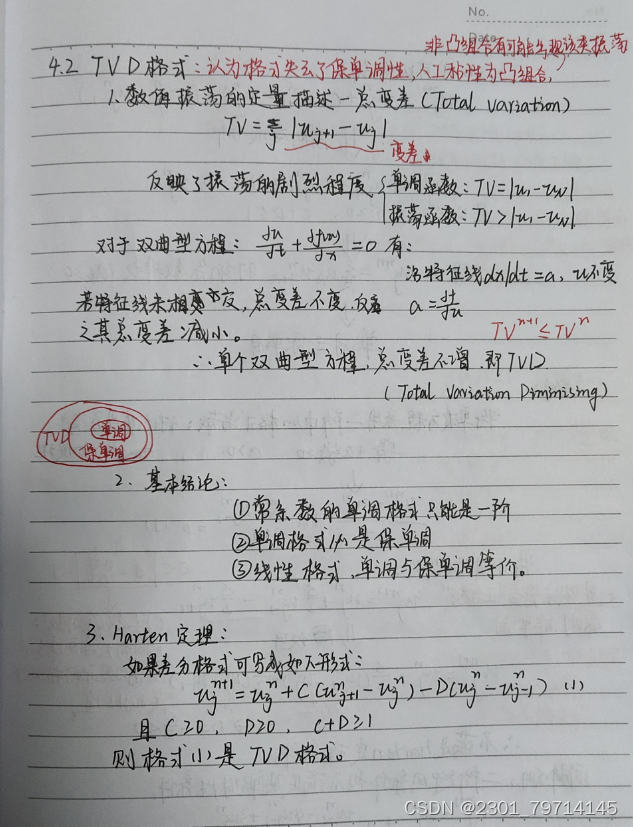 No.
Date
非凸组合有可能出现该类振荡
4.2 TVD格式：认为格式失去了保单调性，人工粘性为凸组合，
1. 数值振荡的定量描述-总变差（Total variation）
TV=Σ_j |u_{j+1}-u_j|
变差
反映了振荡的剧烈程度 { 单调函数：TV=|u_1-u_N|
振荡函数：TV>|u_1-u_N|
对于双曲型方程：∂u/∂t+∂f(u)/∂x=0 有：
沿特征线dx/dt=a，u不变
若特征线未相交，总变差不变，反 a=∂f/∂u
之其总变差减小。 TV^{n+1}≤TV^n
∴单个双曲型方程，总变差不增，即TVD
（Total Variation Diminising）
TVD 单调
保单调
2. 基本结论：
①常系数的单调格式只能是一阶
②单调格式必是保单调
③线性格式，单调与保单调等价。
3. Harten定理：
如果差分格式可写成如下形式：
u_j^{n+1}=u_j^n+C(u_{j+1}^n-u_j^n)-D(u_j^n-u_{j-1}^n) (1)
且C≥0，D≥0，C+D≥1
则格式(1)是TVD格式。
CSDN @2301_79714145